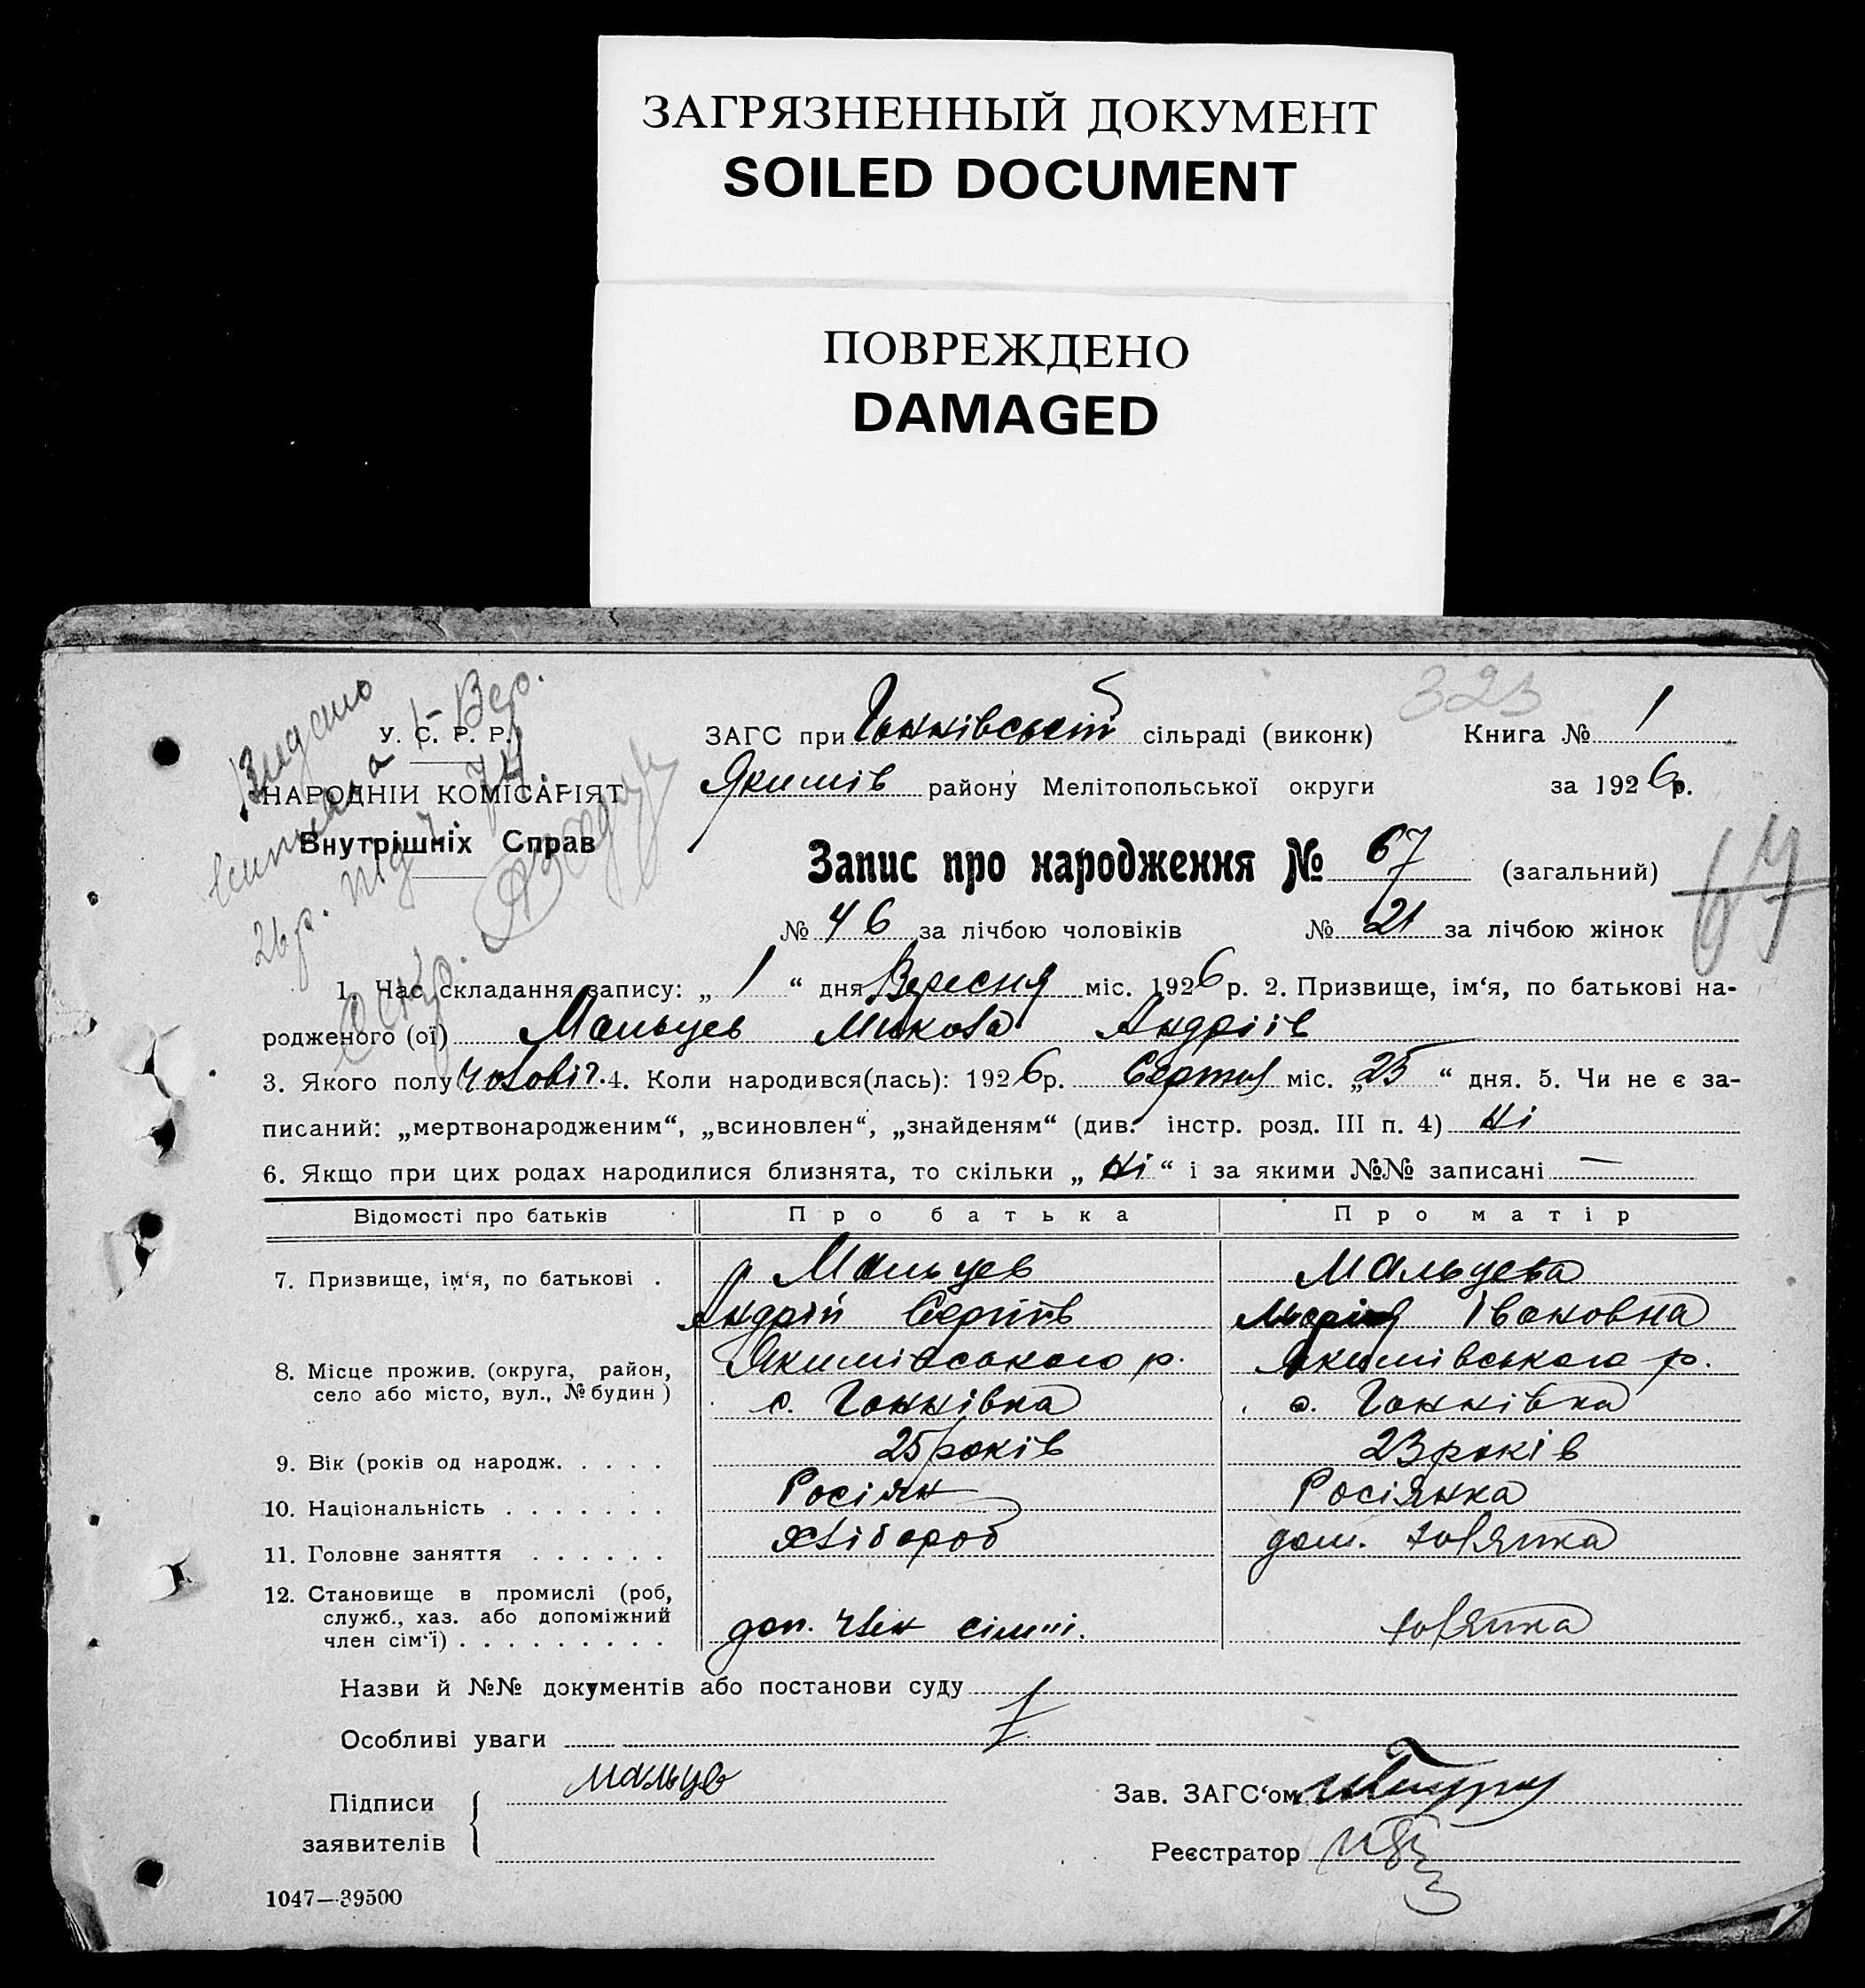 ЗАГРЯЗНЕННЫЙ ДОКУМЕНТ
SOILED DOCUMENT
ПОВРЕЖДЕНО
DAMAGED
323
Видано
1-Вер.
У. С. Р. Р.
НАРОДНІЙ КОМІСАРІЯТ
Внутрішніх Справ
26 р. під № 74
ЗАГС при Ганнівській сільраді (виконк) Книга № 1
Якимів району Мелітопольської округи за 1926 р.
Запис про народження № 67 (загальний)
67
№ 46 за лічбою чоловіків № 21 за лічбою жінок
1. Час складання запису: „ 1 “ дня Вересня міс. 1926 р. 2. Призвище, ім‘я, по батькові на-
родженого (ої) Мальцев Микола Андріїв
3. Якого полу чолові?. 4. Коли народився(лась): 1926 р. Серпня міс. „ 25 “ дня. 5. Чи не є за-
писаний: „мертвонародженим“, „всиновлен“, „знайденям“ (див. інстр. розд. III п. 4) Ні
6. Якщо при цих родах народилися близнята, то скільки „ Ні “ і за якими №№ записані —
Відомості про батьків Про батька Про матір
7. Призвище, ім‘я, по батькові . Мальцев Мальцева
Андрій Сергіїв Марія Івановна
8. Місце прожив. (округа, район, Якимівського р. Якимівського р.
село або місто, вул., № будин ) с. Ганнівка с. Ганнівка
9. Вік (років од народж. . . . . 25 років 23 років
10. Національність . . . . . . . Росіян Росіянка
11. Головне заняття . . . . . . Хлібороб дом. хозяйка
12. Становище в промислі (роб,
служб., хаз. або допоміжний
член сім‘ї) . . . . . . . . . доп. член сімїі. хозяйка
Назви й №№ документів або постанови суду
Особливі уваги
Підписи Мальцев Зав. ЗАГС‘ом
заявителів Реєстратор
1047—39500